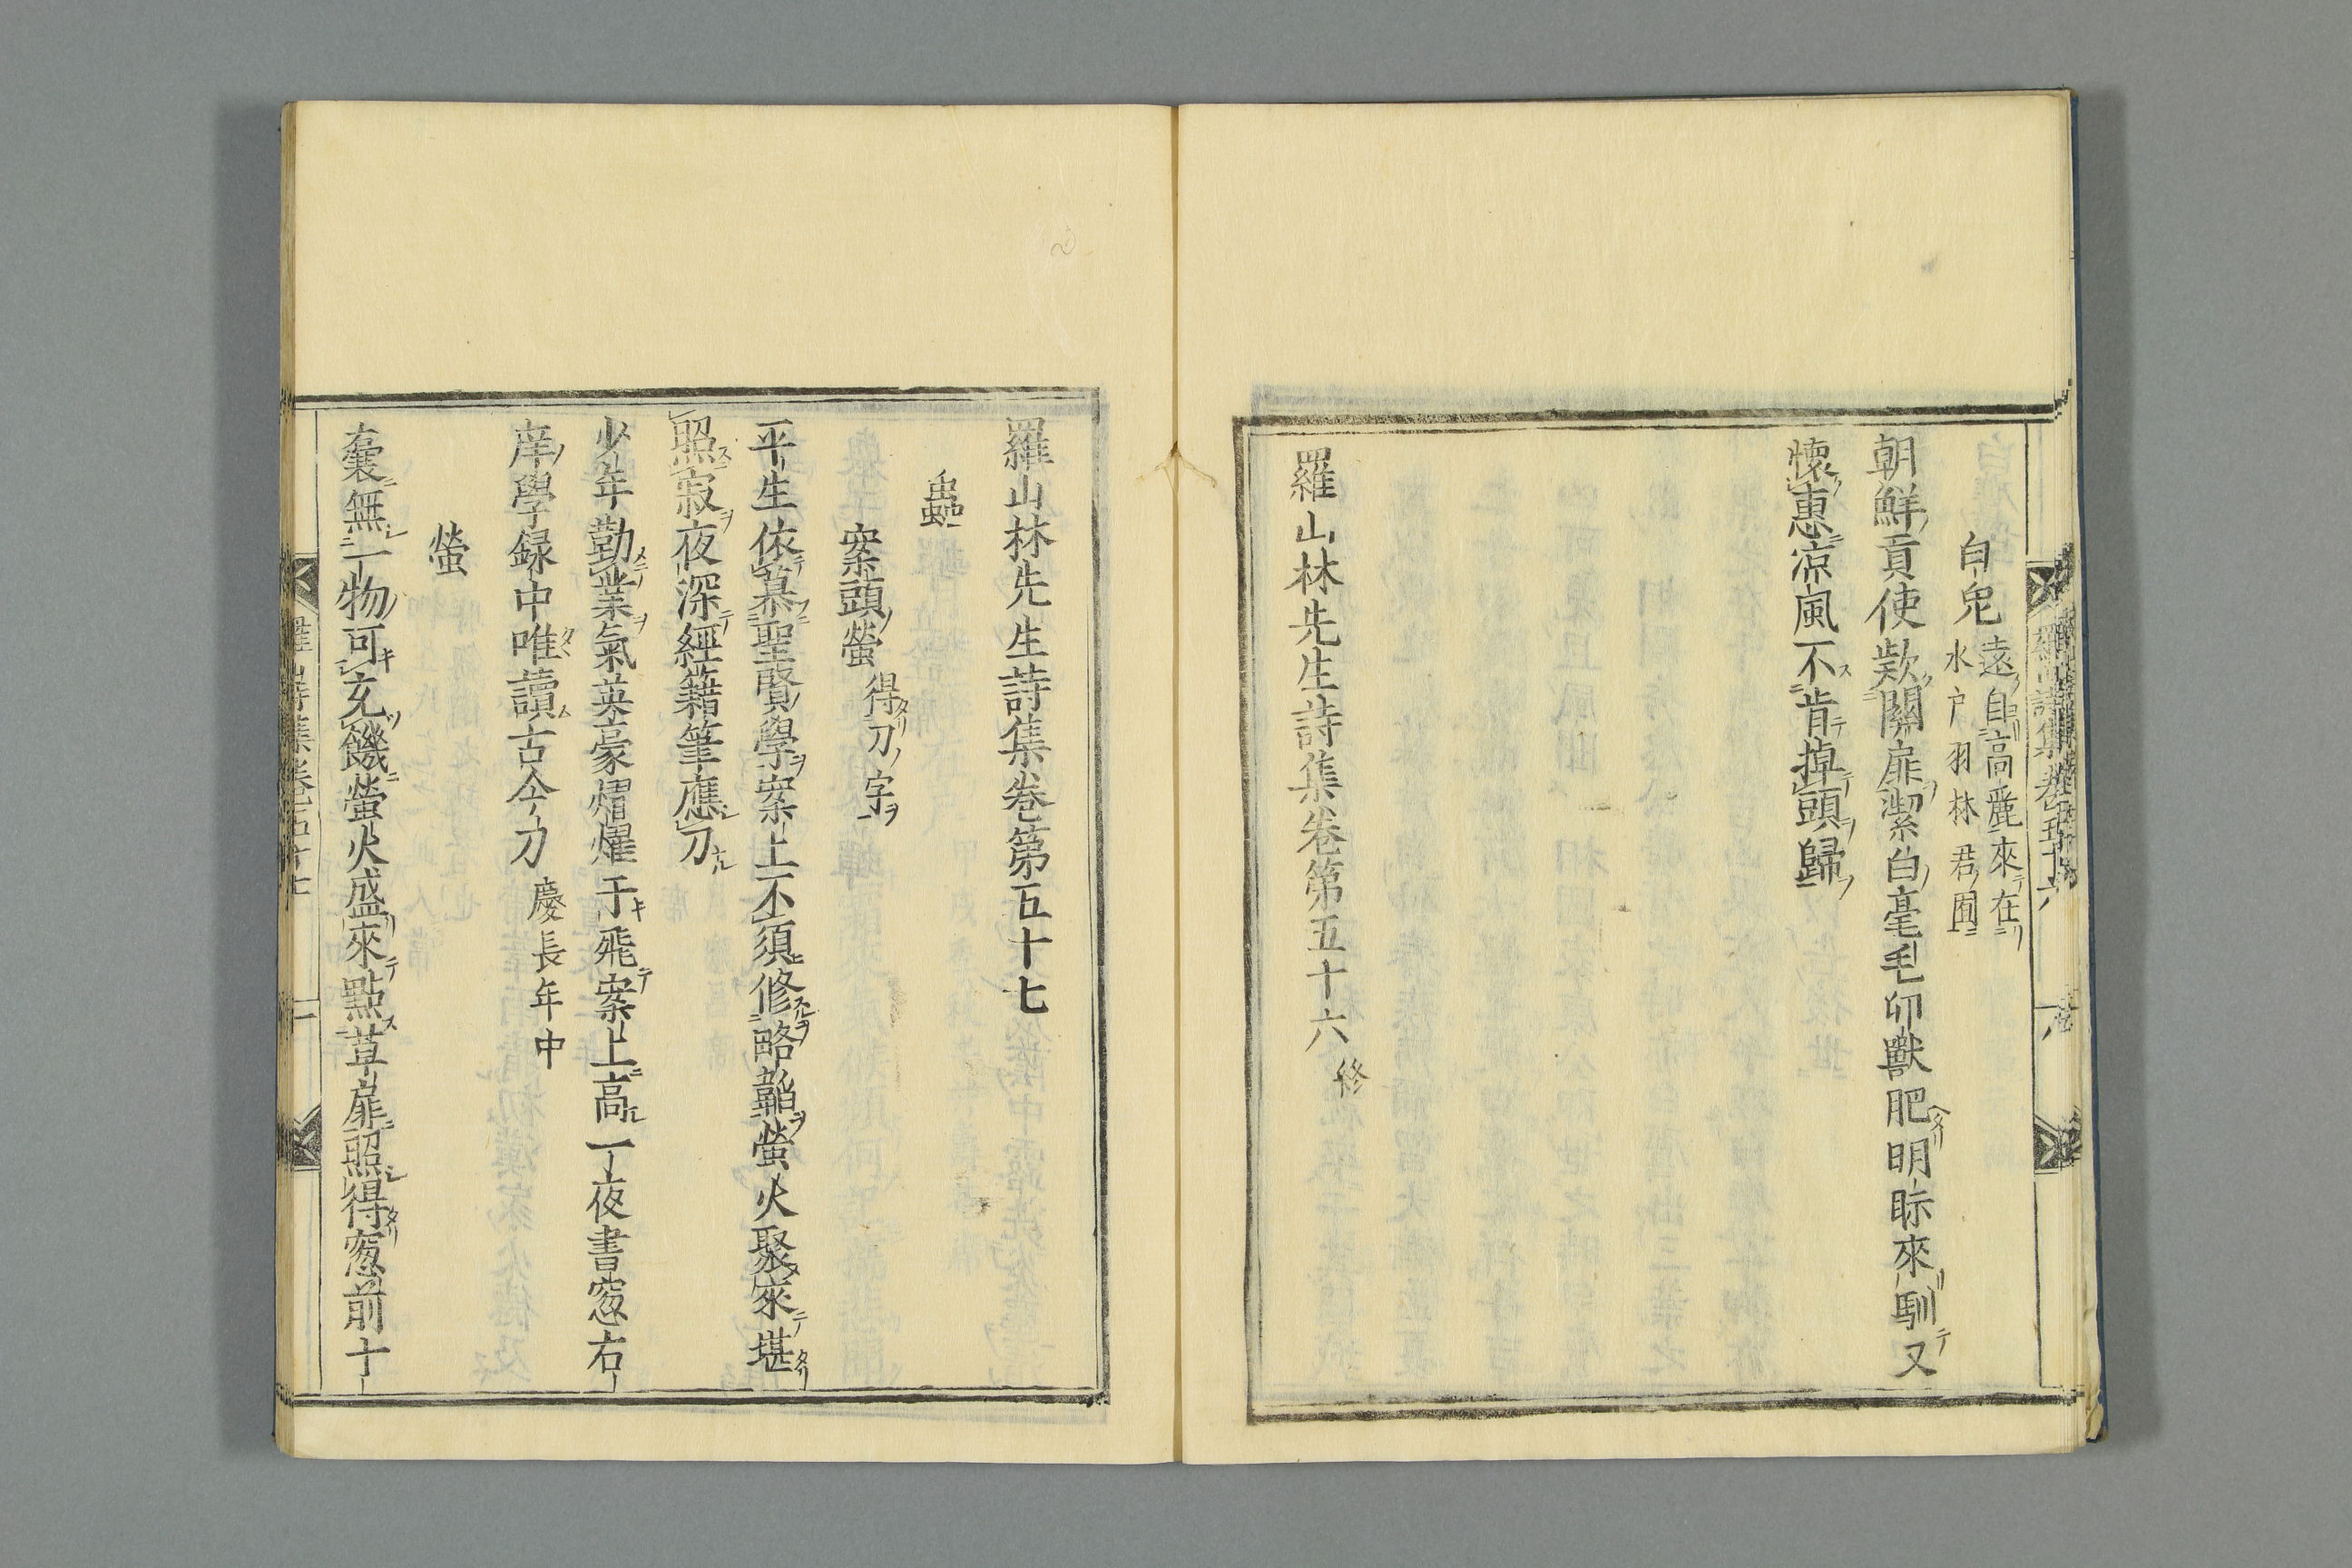 白兎
遠自高麗來在
水戸羽林君囿
朝鮮貢使欵關扉潔白毫毛卯獸肥明眎來馴又
懷惠凉風不肯掉頭歸
羅山林先生詩集卷第五十六 終
羅山林先生詩集卷第五十七
蟲
案頭螢 得刀字
平生依慕聖賢學案上不須修略韜螢火聚來堪
照寂夜深經籍筆應刀
少年勤業氣英豪熠燿于飛案上高一夜書窓右
庠學録中唯讀古今刀 慶長年中
螢
囊無一物可充饑螢火盛來點草扉照得窓前十